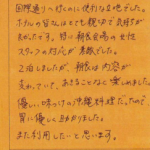 国際通りへ行くのに便利な立地でした。
ホテルの皆さんはとても親切で気持ちが
良かったです。特に朝食会場の女性
スタッフの対応が素敵でした。
2泊しましたが、朝食は内容が
変わっていて、あきることなく楽しめました。
優しい味つけの沖縄料理だったので
胃に優しく助かりました。
また利用したいと思います。